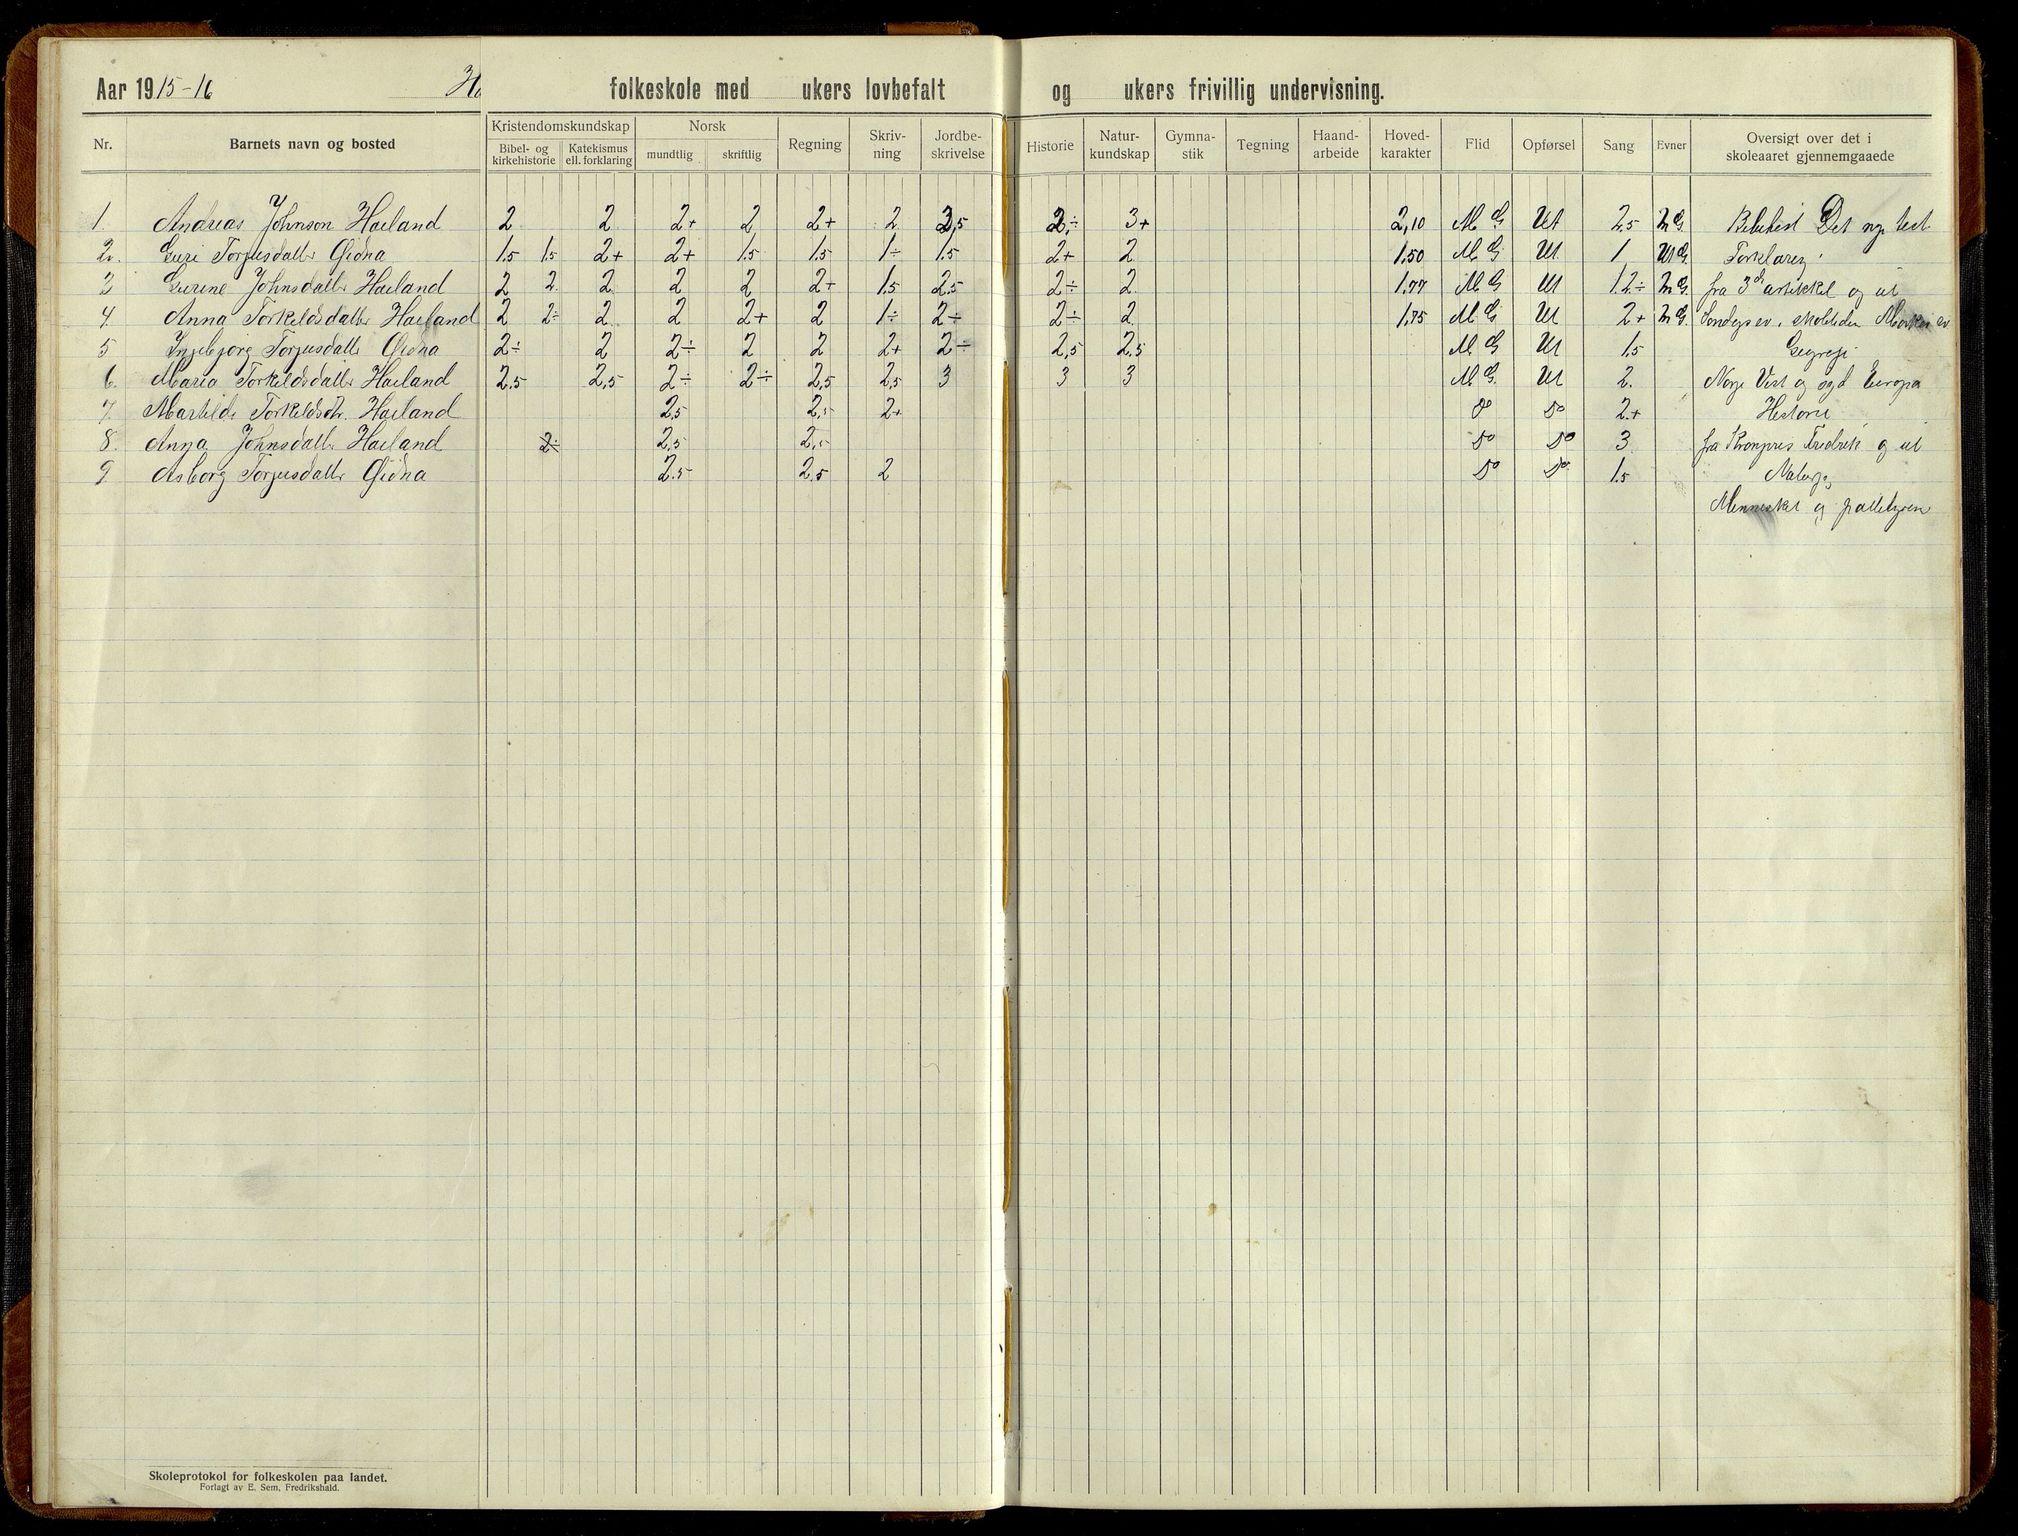 Aar 1915-16 folkeskole med ukers lovbefalt og ukers frivillig undervisning.
Nr. Barnets navn og bosted Kristendomskundskap Bibel- og kirkehistorie Katekismus ell. forklaring Norsk mundtlig skriftlig Regning Skriv-ning Jordbe-skrivelse Historie Natur-kundskap Gymna-stik Tegning Haand-arbeide Hoved-karakter Flid Opførsel Sang Evner Oversigt over det i skoleaaret gjennemgaaede
1. Andreas Johnson Haeland 2 2 2+ 2 2+ 2 2÷ 3+ 2,10 M G Ut 2,5 M G. Det nye test.
2. Guri Torjusdatt. Øidna 1.5 1.5 2+ 2+ 1.5 1.5 1÷ 1.5 2+ 2 1.50 M G Ut 1 Ut G. Forklaring
3 Gurine Johnsdatt. Haeland 2 2. 2 2 2 2+ 1.5 2.5 2÷ 2. 1.77 M G Ut 1.2÷ M G. fra 3die artikkel og ut
4. Anna Torkeldsdatt. Haeland 2 2÷ 2 2 2+ 2 1÷ 2÷ 2÷ 2 1.75 M G Ut 2+ M G.
5 Ingebjorg Torjusdatt. Øidna 2÷ 2 2÷ 2 2 2+ 2÷ 2,5 2,5 M G Ut 1.5 Geografi
6. Maria Torkeldsdatt. Haeland 2.5 2,5 2÷ 2÷ 2,5 2,5 3 3 3 M G. Ut 2. Norge Vest og syd Europa
7. Torkeldsdtr. Haeland 2,5 2,5 2+ do do 2.+ Historie
8. Anna Johnsdatt. Haeland 2÷ 2,5 2,5 do do 3 fra Kronprins Fredrik og ut
9. Asborg Torjusdatt. Øidna 2.5 2,5 2 do do. 1.5
Mennesket og pattedyrene
Skoleprotokol for folkeskolen paa landet.
Forlagt av E. Sem, Fredrikshald.